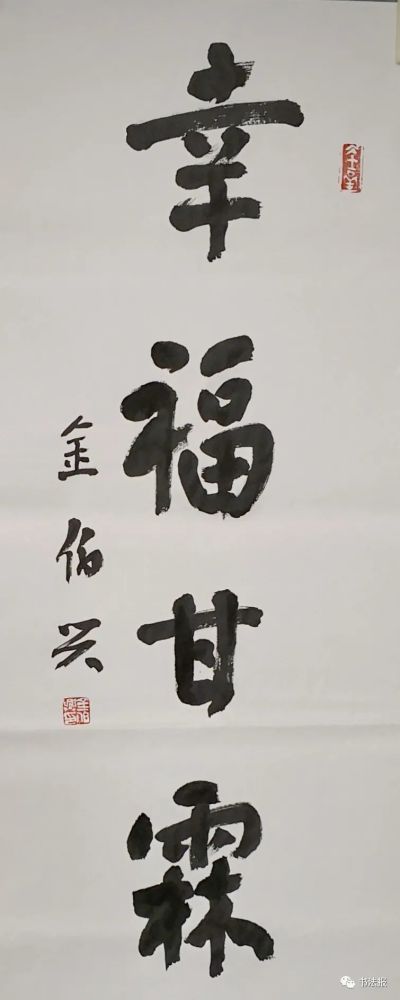 幸福甘霖
金伯兴
书法报